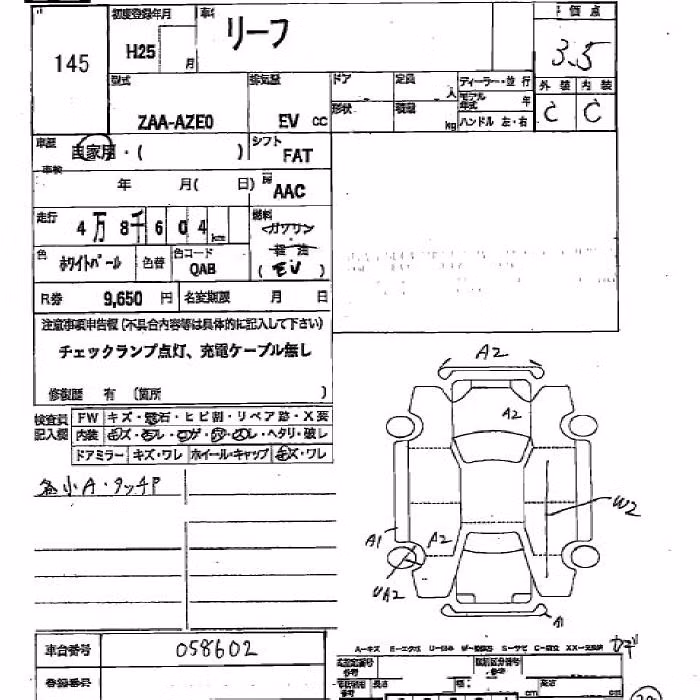 145
初度登録年月
H25 月
車名
リーフ
評価点
3.5
型式
ZAA-AZE0
排気量
EV CC
ドア
定員 人
ディーラー・並行
モデル年式 年
形状
積載 kg
ハンドル 左・右
外装 内装
C C
車歴 自家用・( )
シフト
FAT
車検
年 月( 日)
AAC
走行
4万8千604km
燃料
ガソリン
軽油
(EV)
色 ホワイトパール
色替
色コード
QAB
R券 9,650 円
名変期限 月 日
注意事項申告欄(不具合内容等は具体的に記入して下さい)
チェックランプ点灯、充電ケーブル無し
修復歴 有 (箇所 )
検査員記入欄
FW キズ・飛石・ヒビ割・リペア跡・X要
内装 キズ・スレ・コゲ・・ヘタリ・破レ
ドアミラー キズ・ワレ ホイール・キャップ キズ・ワレ
各小A・タッチP
A2
A2
W2
A1
A2
UA2
A1
車台番号 058602
登録番号
A-キズ E-エクボ U-凹み W-補修跡 S-サビ C-腐食 XX-交換済
長さ
幅
高さ
cm